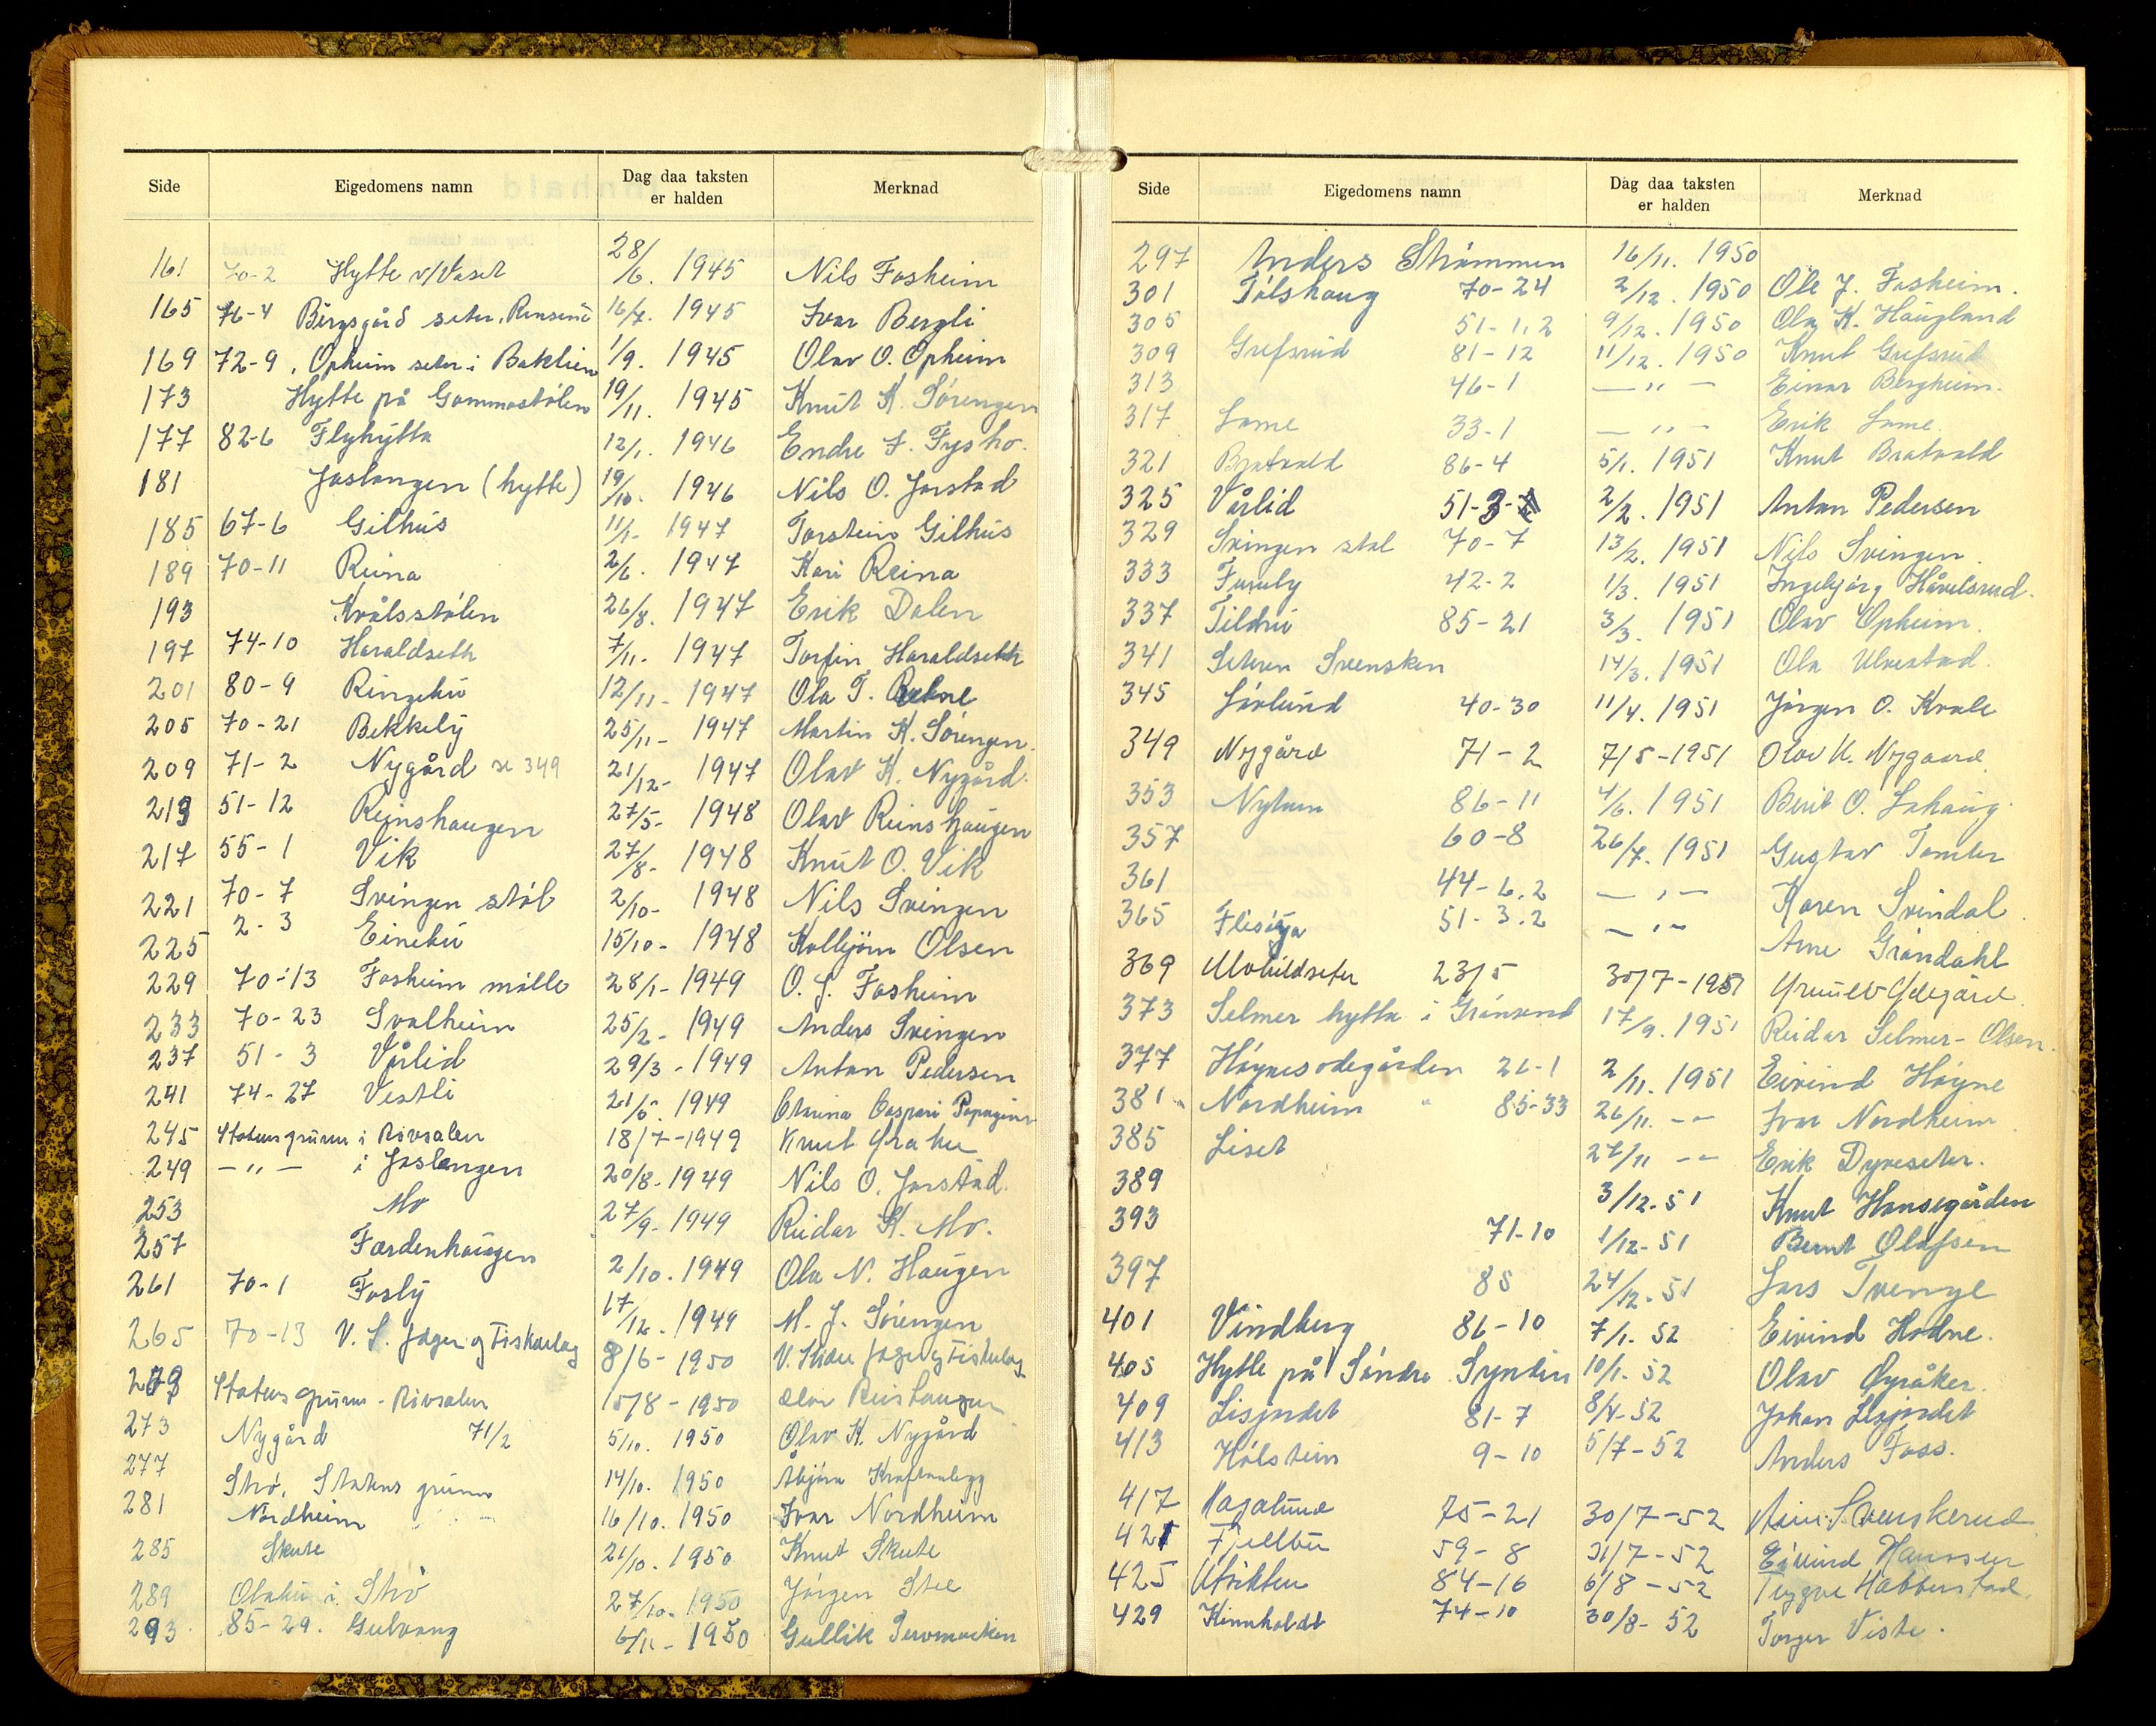 Side Eigedomens namn Dag daa taksten er halden Merknad
161 70-2 Hytte v/Vaset 28/6. 1945 Nils Fosheim
165 76-4 Bergsgård seter, 16/7. 1945 Ivar Bergli
169 72-9, Opheim seter i Baklien 1/9. 1945 Olav O. Opheim
173 Hytte på Gommostølen 19/11. 1945 Knut K. Sørengen
177 82-6 Flyhytta 12/1. 1946 Endre J.
181 Jaslangen (hytte) 19/10. 1946 Nils O. Jarstad
185 67-6 Gilhus 11/1- 1947 Torstein Gilhus
189 70-11 Reina 2/6. 1947 Kari Reina
193 Kvålsstølen 26/8. 1947 Erik Dalen
197 74-10 Haraldseth 7/11- 1947 Torfin Haraldseth
201 80-9 Ringebu 12/11- 1947 Ola T.
205 70-21 Bekkely 25/11- 1947 Martin K. Sørengen
209 71-2 Nygård se 349 21/12- 1947 Olav K. Nygård
213 51-12 Reinshaugen 27/5- 1948 Olav Reinshaugen
217 55-1 Vik 27/8- 1948 Knut O. Vik
221 70-7 Svingen støl 2/10- 1948 Nils Svingen
225 2-3 Einebu 15/10- 1948 Kolbjörn Olsen
229 70-13 Fosheim mølle 28/1- 1949 O. J. Fosheim
233 70-23 Svalheim 25/2- 1949 Anders Svingen
237 51-3 Vårlid 29/3- 1949 Anton Pedersen
241 74-27 Vestli 21/5. 1949 Caspari
245 Statens grunn i Rivsalen 18/7-1949 Knut
249 -"- i Jaslangen 20/8-1949 Nils O. Jarstad.
253 Mo 27/9-1949 Reidar K. Mo.
257 Færdenhaugen 2/10. 1949 Ola N. Haugen
261 70-1 Fosly 17/12. 1949 M. J. Sørengen
265 70-13 V. S. Jeger og Fiskarlag 8/6-1950 V. Slidre Jeger og Fiskarlag
Statens grunn - Rivsalen 15/8-1950 Olav Reinshaugen
273 Nygård 71/2 5/10. 1950 Olav K. Nygård
277 Strø, Statens grunn 14/10. 1950 Åbjøra Kraftanlegg
281 Nordheim 16/10. 1950 Ivar Nordheim
285 Skute 21/10. 1950 Knut Skute
289 Olabu i Strø 27/10. 1950 Jørgen Stee
293 85-29. Gulvang 6/11- 1950 Gullik
Side Eigedomens namn Dag daa taksten er halden Merknad
297 Anders Strømmen 16/11. 1950
301 Tølshaug 70-24 2/12. 1950 Ole J. Fosheim.
305 51-1,2 9/12. 1950 Ola K. Haugland
309 Grefsrud 81-12 11/12. 1950 Knut Grefsrud
313 46-1 -"- Einar Bergheim.
317 Lome 33-1 -"- Erik Lome.
321 Bratvold 86-4 5/1. 1951 Knut Bratvold
325 Vårlid 51-3 2/2. 1951 Anton Pedersen
329 Svingen støl 70-7 13/2. 1951 Nils Svingen
333 Furuly 42-2 1/3. 1951 Ingebjørg Håvelsrud.
337 Tildru 85-21 3/3. 1951 Olav Opheim.
341 Seteren Svensken 14/3. 1951 Ola Ulvestad.
345 Løvlund 40-30 11/4. 1951 Jørgen O. Kvale
349 Nygård 71-2 7/5-1951 Olav K. Nygaard
353 Nytun 86-11 4/6. 1951 Berit O.
357 60-8 26/7. 1951 Gustav
361 44-6.2 -"- Karen Svindal
365 51-3.2 -"- Arne Grøndahl
369 23/5 30/7-1951
373 Selmer hytta i Grønsend 17/9. 1951 Reidar Selmer-Olsen.
377 Høynesodegården 26-1 2/11. 1951 Eivind Høyne
381 Nordheim 85-33 26/11. -- Ivar Nordheim
385 Liset 27/11 -- Erik Dyveseter.
389 3/12. 51 Knut Hansegården
393 71-10 1/12-51 Bernt Olafsen
397 85 24/12-51 Lars Tvenge
401 Vindberg 86-10 7/1. 52 Eivind Hodne.
405 Hytte på Søndre Syndin 10/1. 52 Olav Øyråker.
409 Lisjordet 81-7 8/4-52 Johan Lisjordet
413 Hølstein 9-10 5/7-52 Anders Foss.
417 Hagalund 75-21 30/7-52 Svenskerud
421 Fjellbu 59-8 31/7-52 Eivind Hanssen
425 Utsikten 84-16 6/8-52 Trygve Habberstad.
429 Kinnholdt 74-10 30/8-52 Torger Viste.